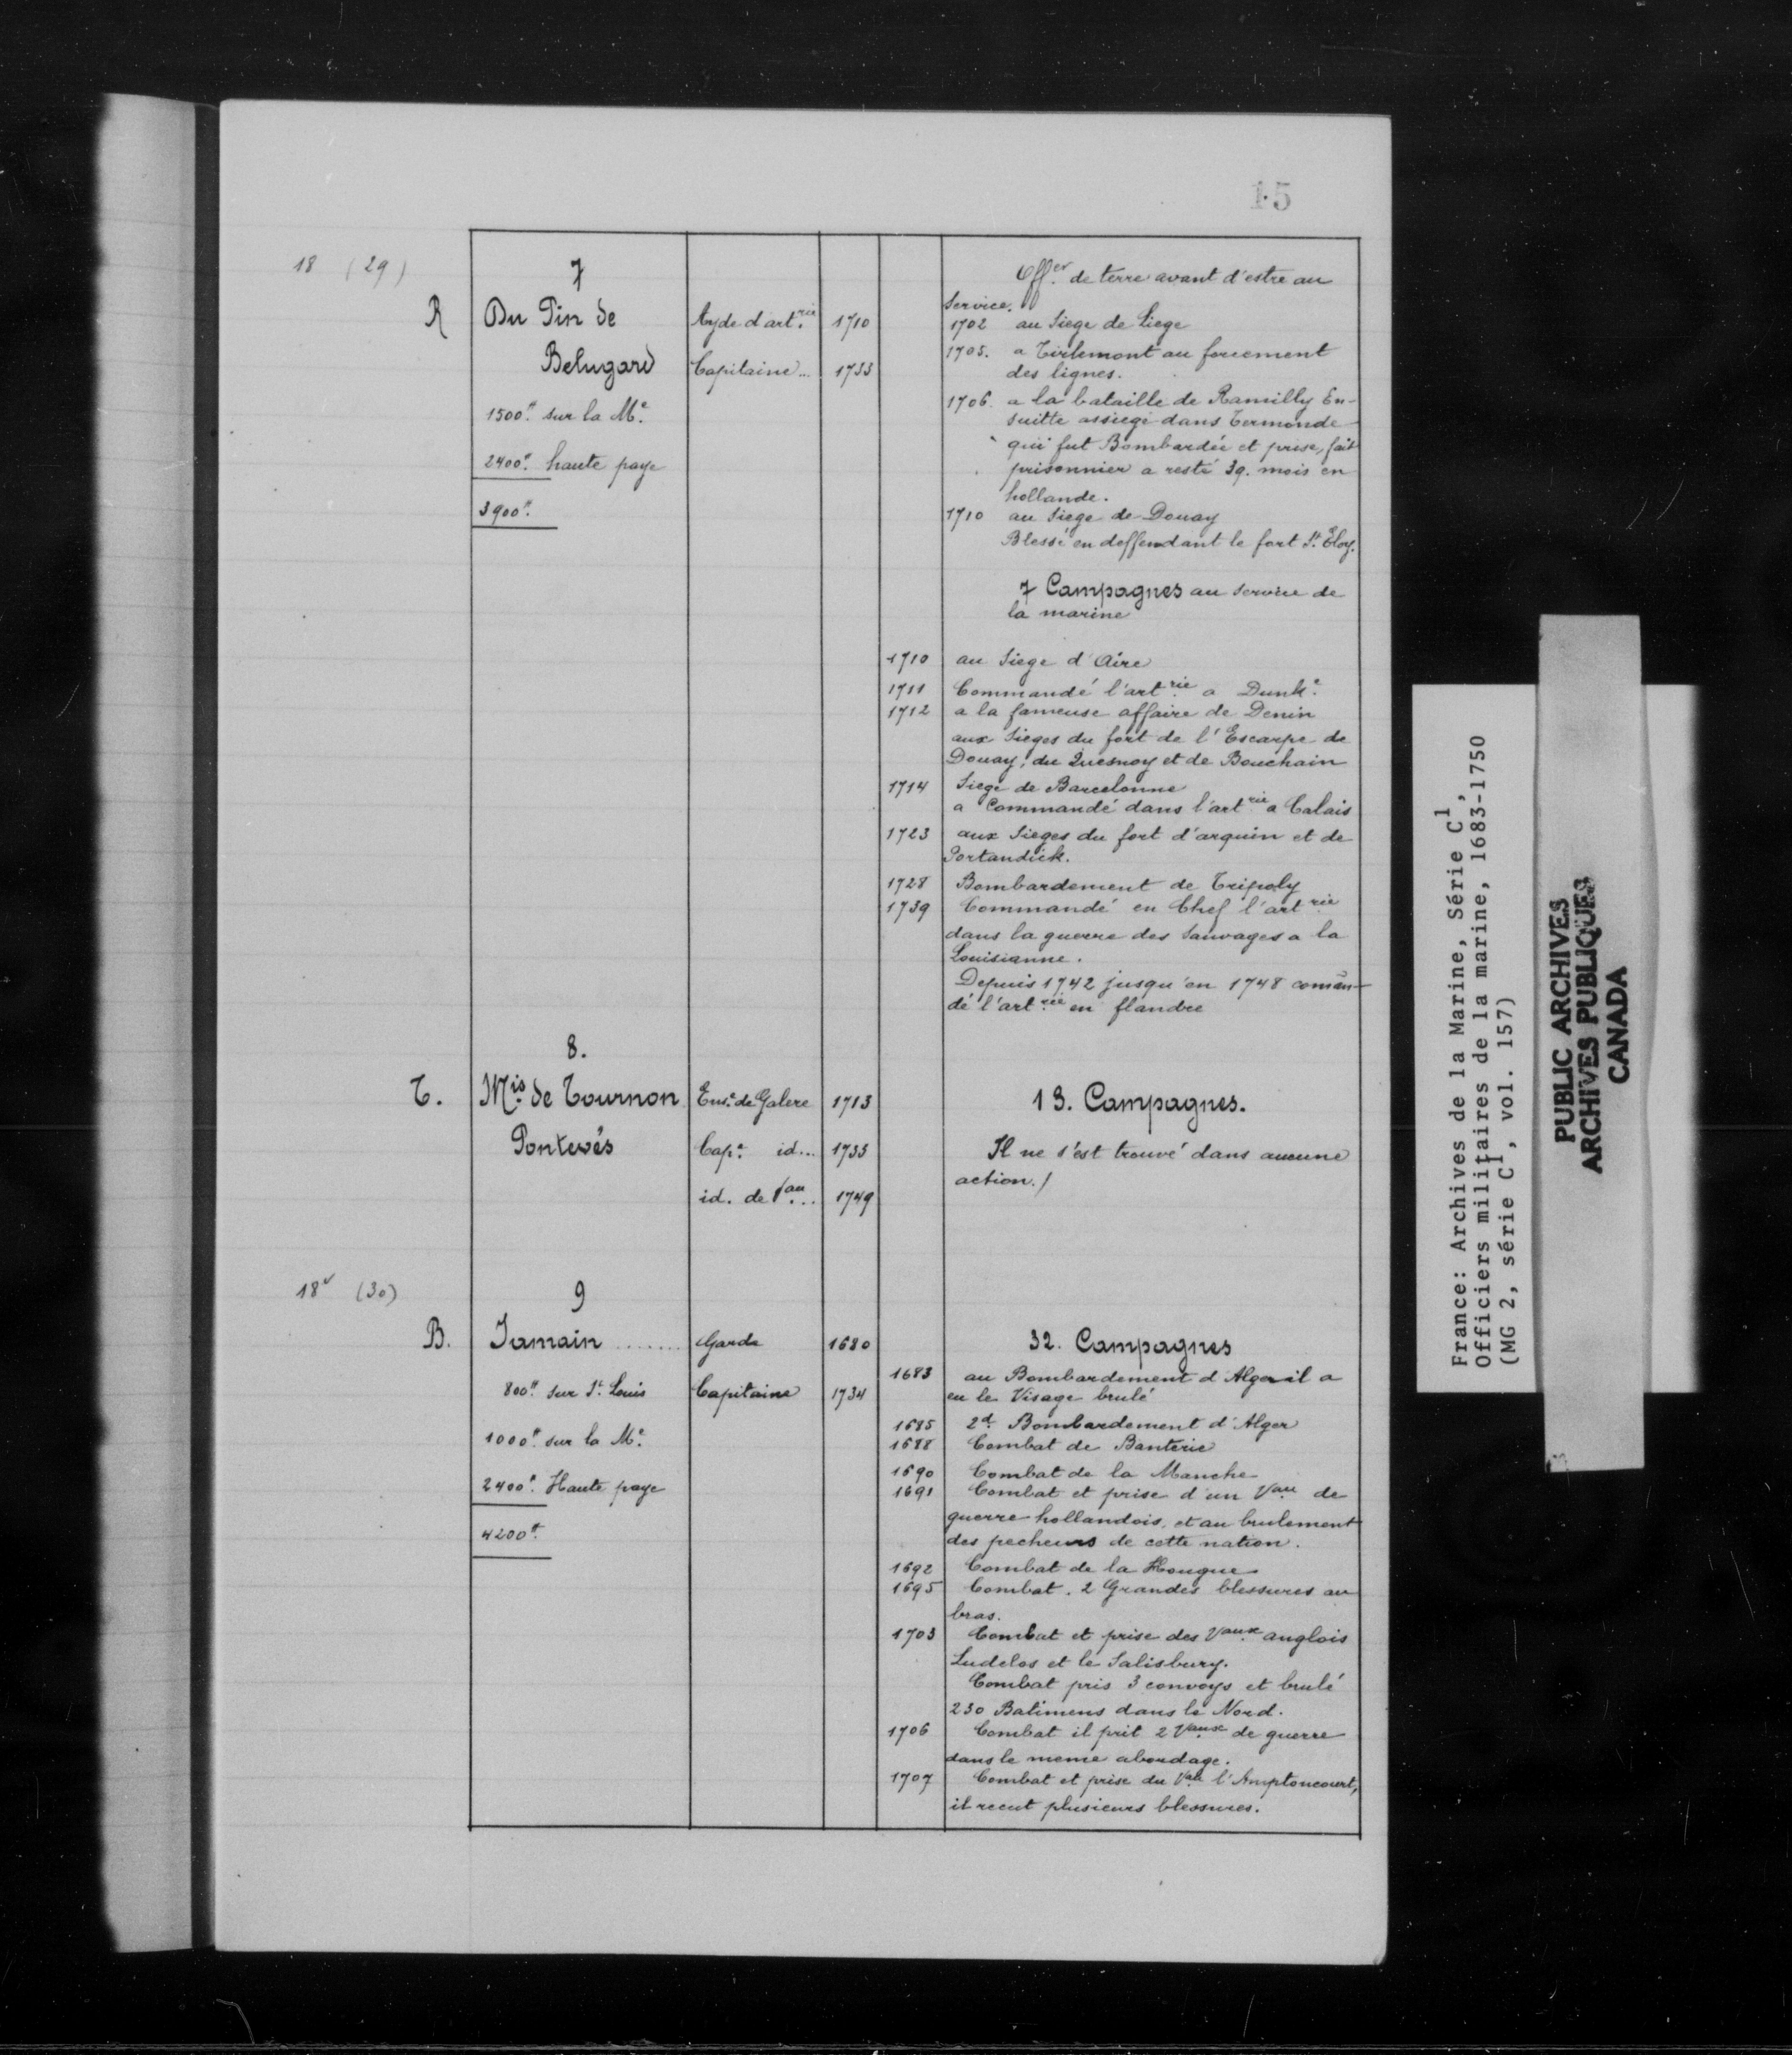 15
18 (29)
7
R
Du Pin de
Belugard
1500# sur la Me.
2400# haute paye
3900#
Ayde d'artrie 1710
Capitaine... 1733
Offer. de terre avant d'estre au
Service.
1702 au Siege de Liege
1705. a Tirlemont au forcement
des lignes.
1706. a la bataille de Ramilly En-
suitte assiegé dans Termonde
qui fut Bombardée et prise, fait
prisonnier a resté 39. mois en
hollande.
1710 au Siege de Douay
Blessé en deffendant le fort St. Eloy.
7 Campagnes au service de
la marine
1710 au Siege d'Aire
1711 Commandé l'artrie a Dunke.
1712 a la fameuse affaire de Denin
aux Sieges du fort de l'Escarpe de
Douay, du Quesnoy et de Bouchain
1714 Siege de Barcelonne
a Commandé dans l'artrie a Calais
1723 aux Sieges du fort d'arquin et de
Portandick.
1728 Bombardement de Tripoly
1739 Commandé en Chef l'artrie
dans la guerre des Sauvages a la
Louisianne.
Depuis 1742 jusqu'en 1748 coman-
dé l'artrie en flandre
8.
T.
Mis de Tournon
Pontevés
Ense. de Galere 1713
Cape. id... 1733
id. de Vau... 1749
13. Campagnes.
Il ne s'est trouvé dans aucune
action./
18v (30)
9
B.
Jamain .......
800# sur St. Louis
1000# sur la Me.
2400# Haute paye
4200#
Garde 1680
Capitaine 1734
32. Campagnes
1683 au Bombardement d'Alger il a
eu le Visage brulé
1685 2d. Bombardement d'Alger
1688 Combat de Banterie
1690 Combat de la Manche
1691 Combat et prise d'un Vau de
guerre hollandois, et au brulement
des pecheurs de cette nation.
1692 Combat de la Hougue
1695 Combat. 2 Grandes blessures au
bras.
1703 Combat et prise des Vaux anglois
Ludelos et le Salisbury.
Combat pris 3 convoys et brulé
230 Batimens dans le Nord.
1706 Combat il prit 2 Vaux de guerre
dans le meme abordage.
1707 Combat et prise du Vau l'Amptoncourt,
il recut plusieurs blessures.
France: Archives de la Marine, Série C1,
Officiers militaires de la marine, 1683-1750
(MG 2, série C1, vol. 157)
PUBLIC ARCHIVES
ARCHIVES PUBLIQUES
CANADA